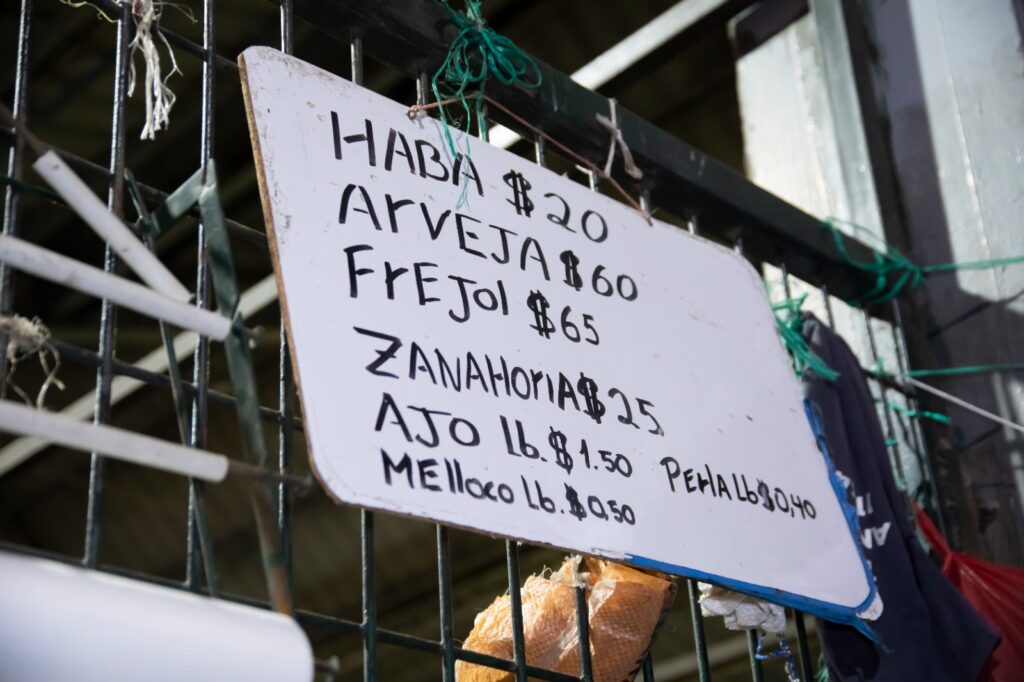 HABA $20
ArVEJA $60
FrEJol $65
ZANAHorIA $25
AJO lb. $1.50 PErlA Lb $0,40
MElloco Lb. $0,50